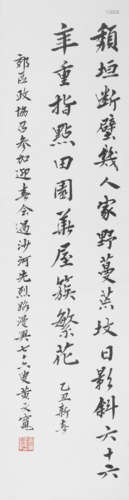 頹垣斷壁幾人家野蔓荒墳日影斜六十六
年重指點田園華屋簇繁花
乙丑新春
郊區政協召參加迎春會過沙河先烈路漫興七六叟黃文寬